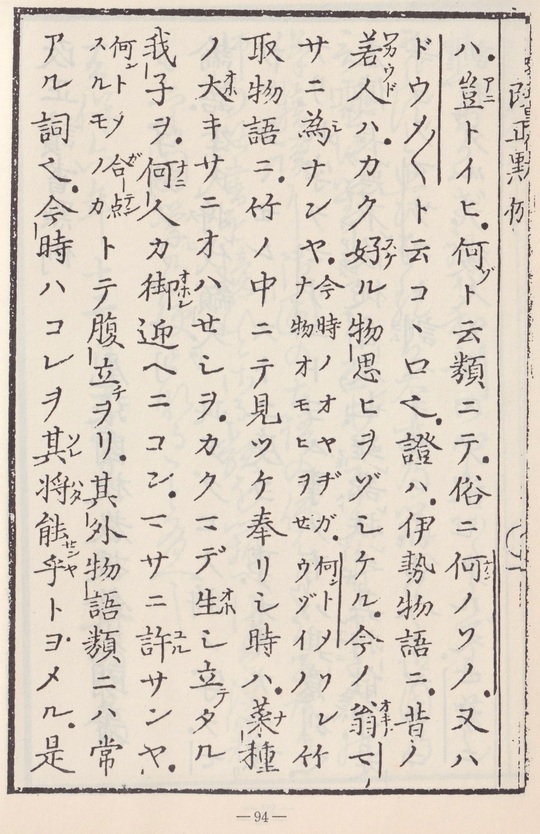 ハ豈トイヒ何ト云類ニテ俗ニ何ノワノ又ハ
ドウメ〱ト云コヽロ也證ハ伊勢物語ニ昔ノ
若人ハカク好ル物思ヒヲゾシケル今ノ翁マ
サニ為ナンヤ今時ノオヤヂガ何トメワレ竹
ナ物オモヒヲせウゾイノ
取物語ニ竹ノ中ニテ見ツケ奉リシ時ハ菜種
ノ大キサニオハせシヲカクマデ生シ立タル
我子ヲ何人カ御迎ヘニコンマサニ許サンヤ
何トスルモノカ合点トテ腹立ヲリ其外物語類ニハ常
アル詞也今時ハコレヲ其将能乎トヨメル是
—94—